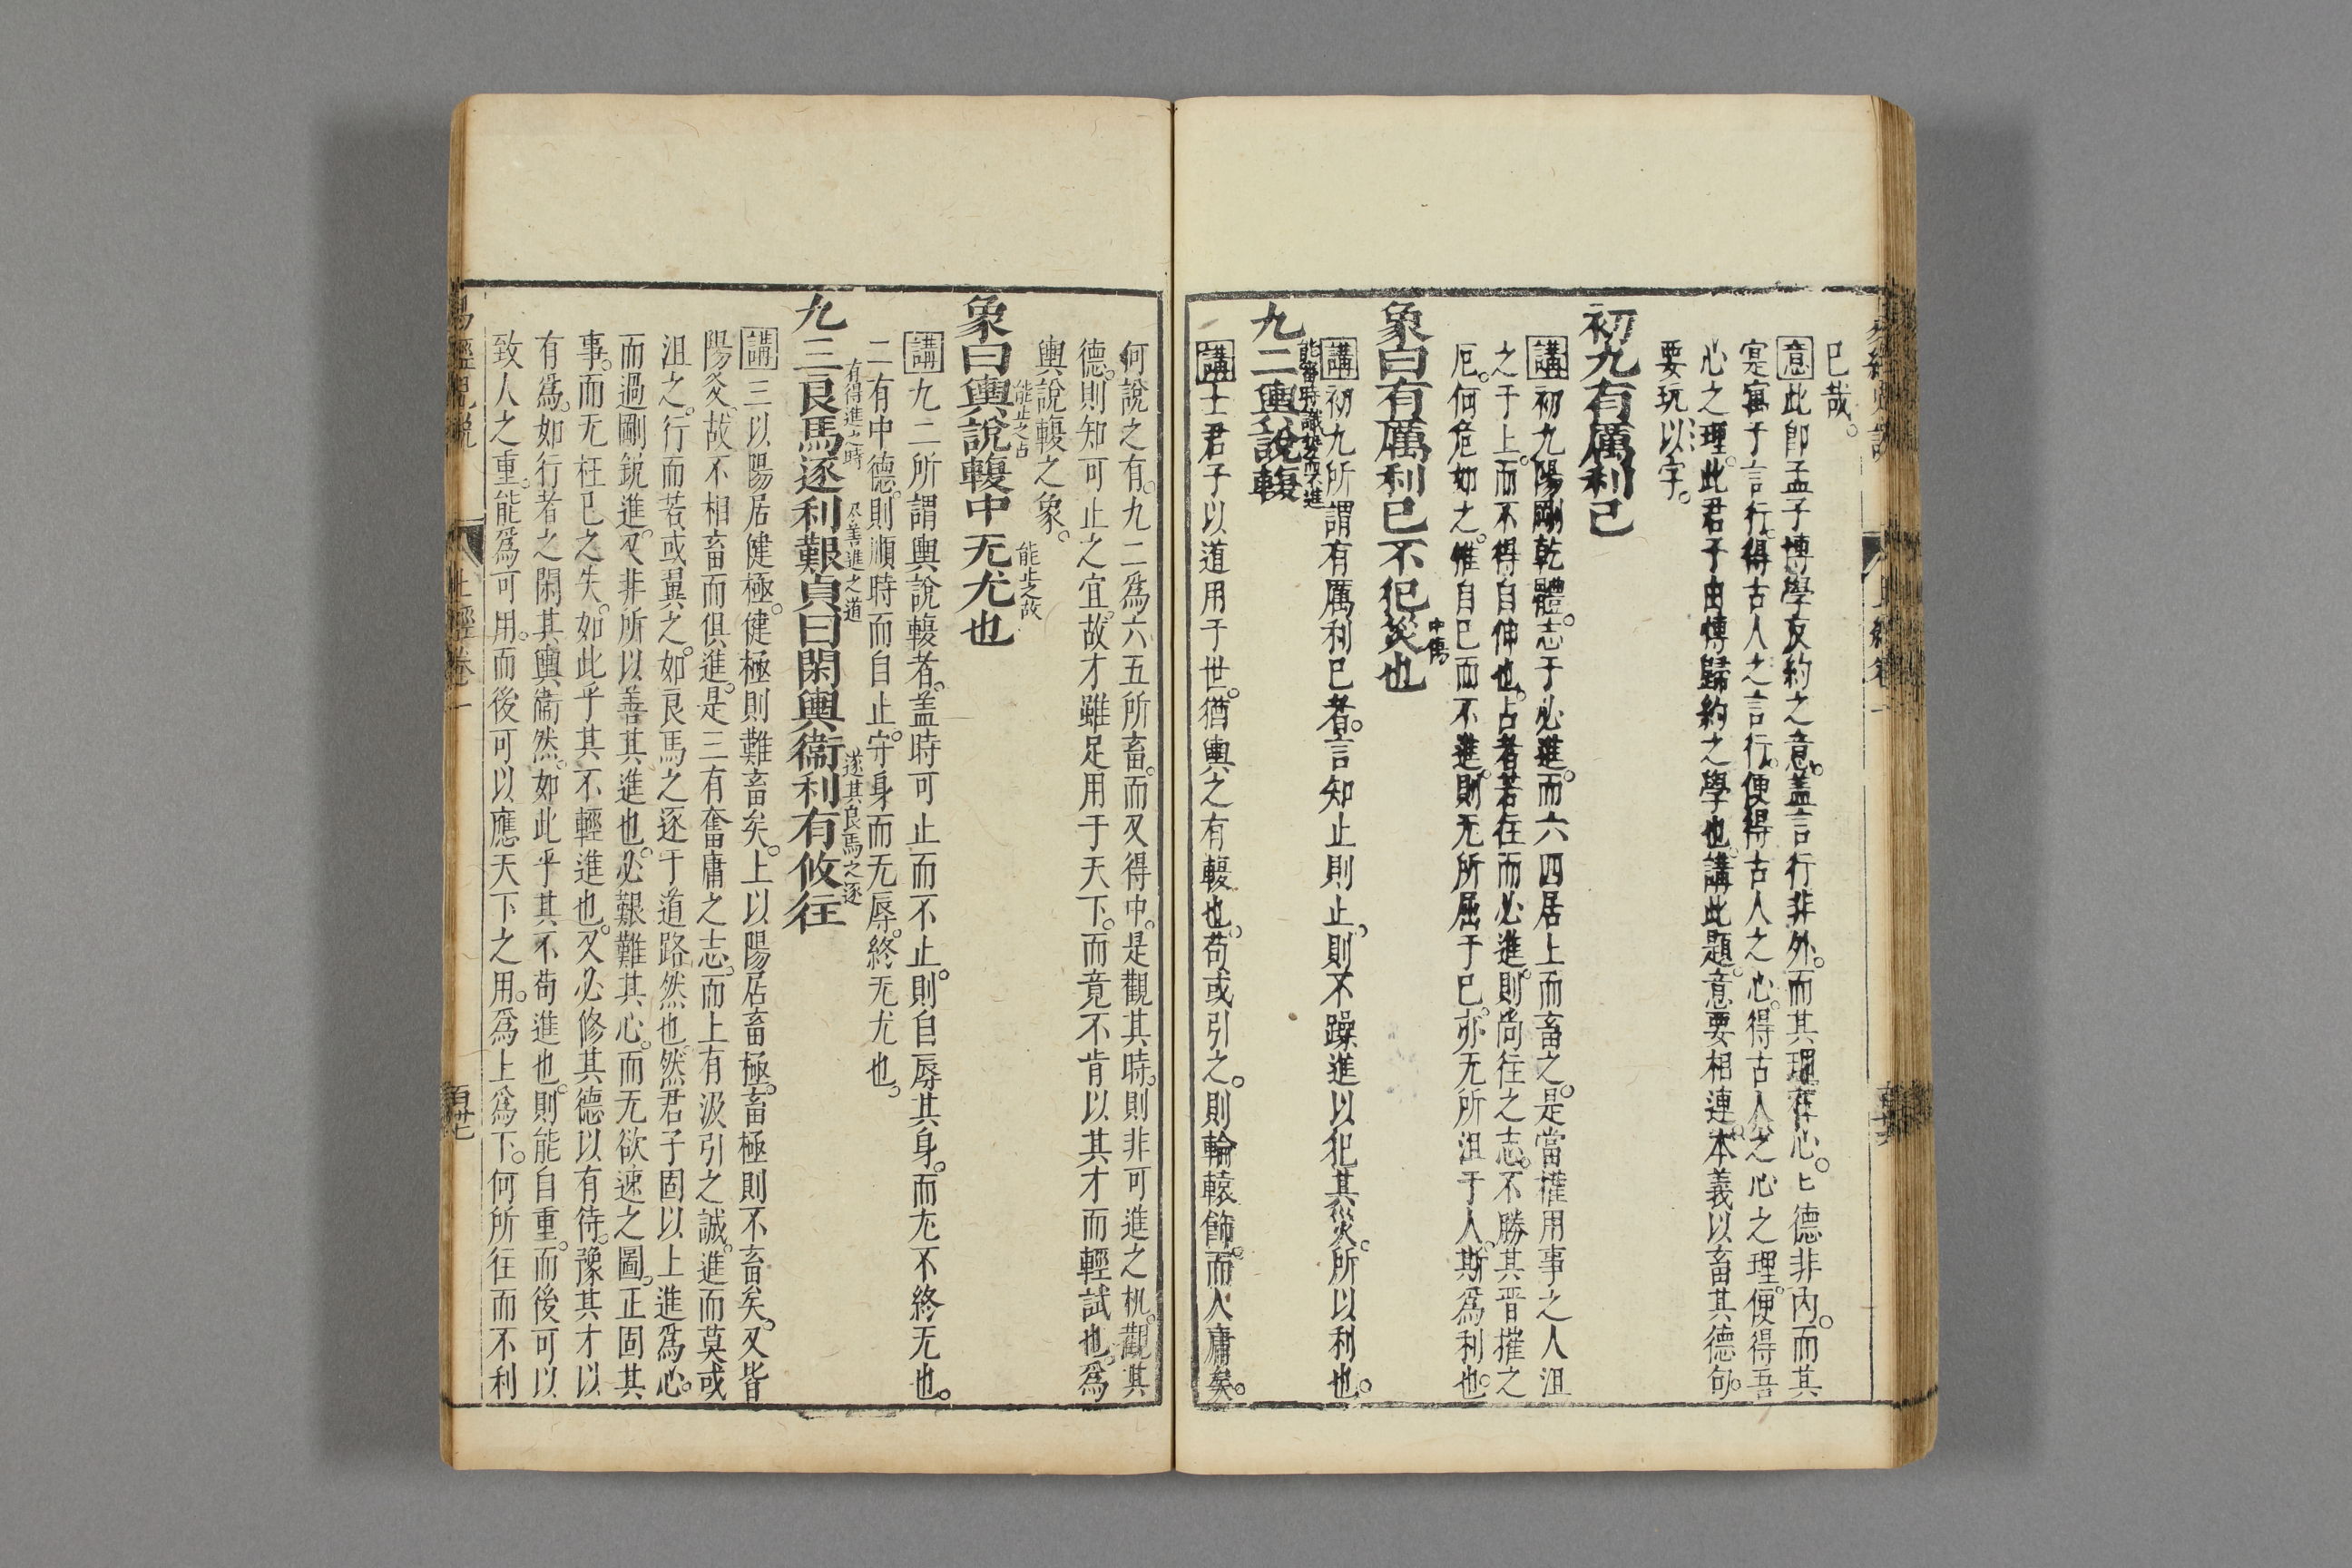 已哉。
意此卽孟子博學反約之意。蓋言行非外。而其理在心。匕德非內。而其
寔寓于言行。得古人之言行。便得古人之心。得古人之心之理。便得吾
心之理。此君子由博歸約之學也。講此題。意要相連。本義以畜其德句。
要玩以字。
初九有厲利已
講初九陽剛乾體。志于必進。而六四居上而畜之。是當權用事之人沮
之于上。而不得自伸也。占者若往而必進。則尚往之志。不勝其晋摧之
厄。何危如之。惟自已而不進。則无所屈于已。亦无所沮于人。斯爲利也。
象曰有厲利已不犯災也
講初九所謂有厲利已者。言知止則止。則不躁進以犯其災。所以利也。
能審時識勢不輕進
九二輿說輹
講士君子以道用于世。猶輿之有輹也。苟或引之。則輪轅飾。而人庸矣。
何說之有。九二爲六五所畜。而又得中。是觀其時。則非可進之机。觀其
德。則知可止之宜。故才雖足用于天下。而竟不肯以其才而輕試也。爲
輿說輹之象。
能止之占 能止之故
象曰輿說輹中无尤也
講九二所謂輿說輹者。蓋時可止而不止。則自辱其身。而尢不終无也。
二有中德。則順時而自止。守身而无辱。終无尤也。
有得進之時 尽善進之道 遂其良馬之逐
九三良馬逐利艱貞曰閑輿衞利有攸往
講三以陽居健極。健極則難畜矣。上以陽居畜極。畜極則不畜矣。又皆
陽爻。故不相畜而俱進。是三有奮庸之志。而上有汲引之誠。進而莫或
沮之。行而若或翼之。如良馬之逐于道路然也。然君子固以上進爲心。
而過剛銳進。又非所以善其進也。必艱難其心。而无欲速之圖。正固其
事。而无枉已之失。如此乎其不輕進也。又必修其德以有待。豫其才以
有爲。如行者之閑其輿衞然。如此乎其不苟進也。則能自重。而後可以
致人之重。能爲可用。而後可以應天下之用。爲上爲下。何所往而不利
上經卷一
百卅七